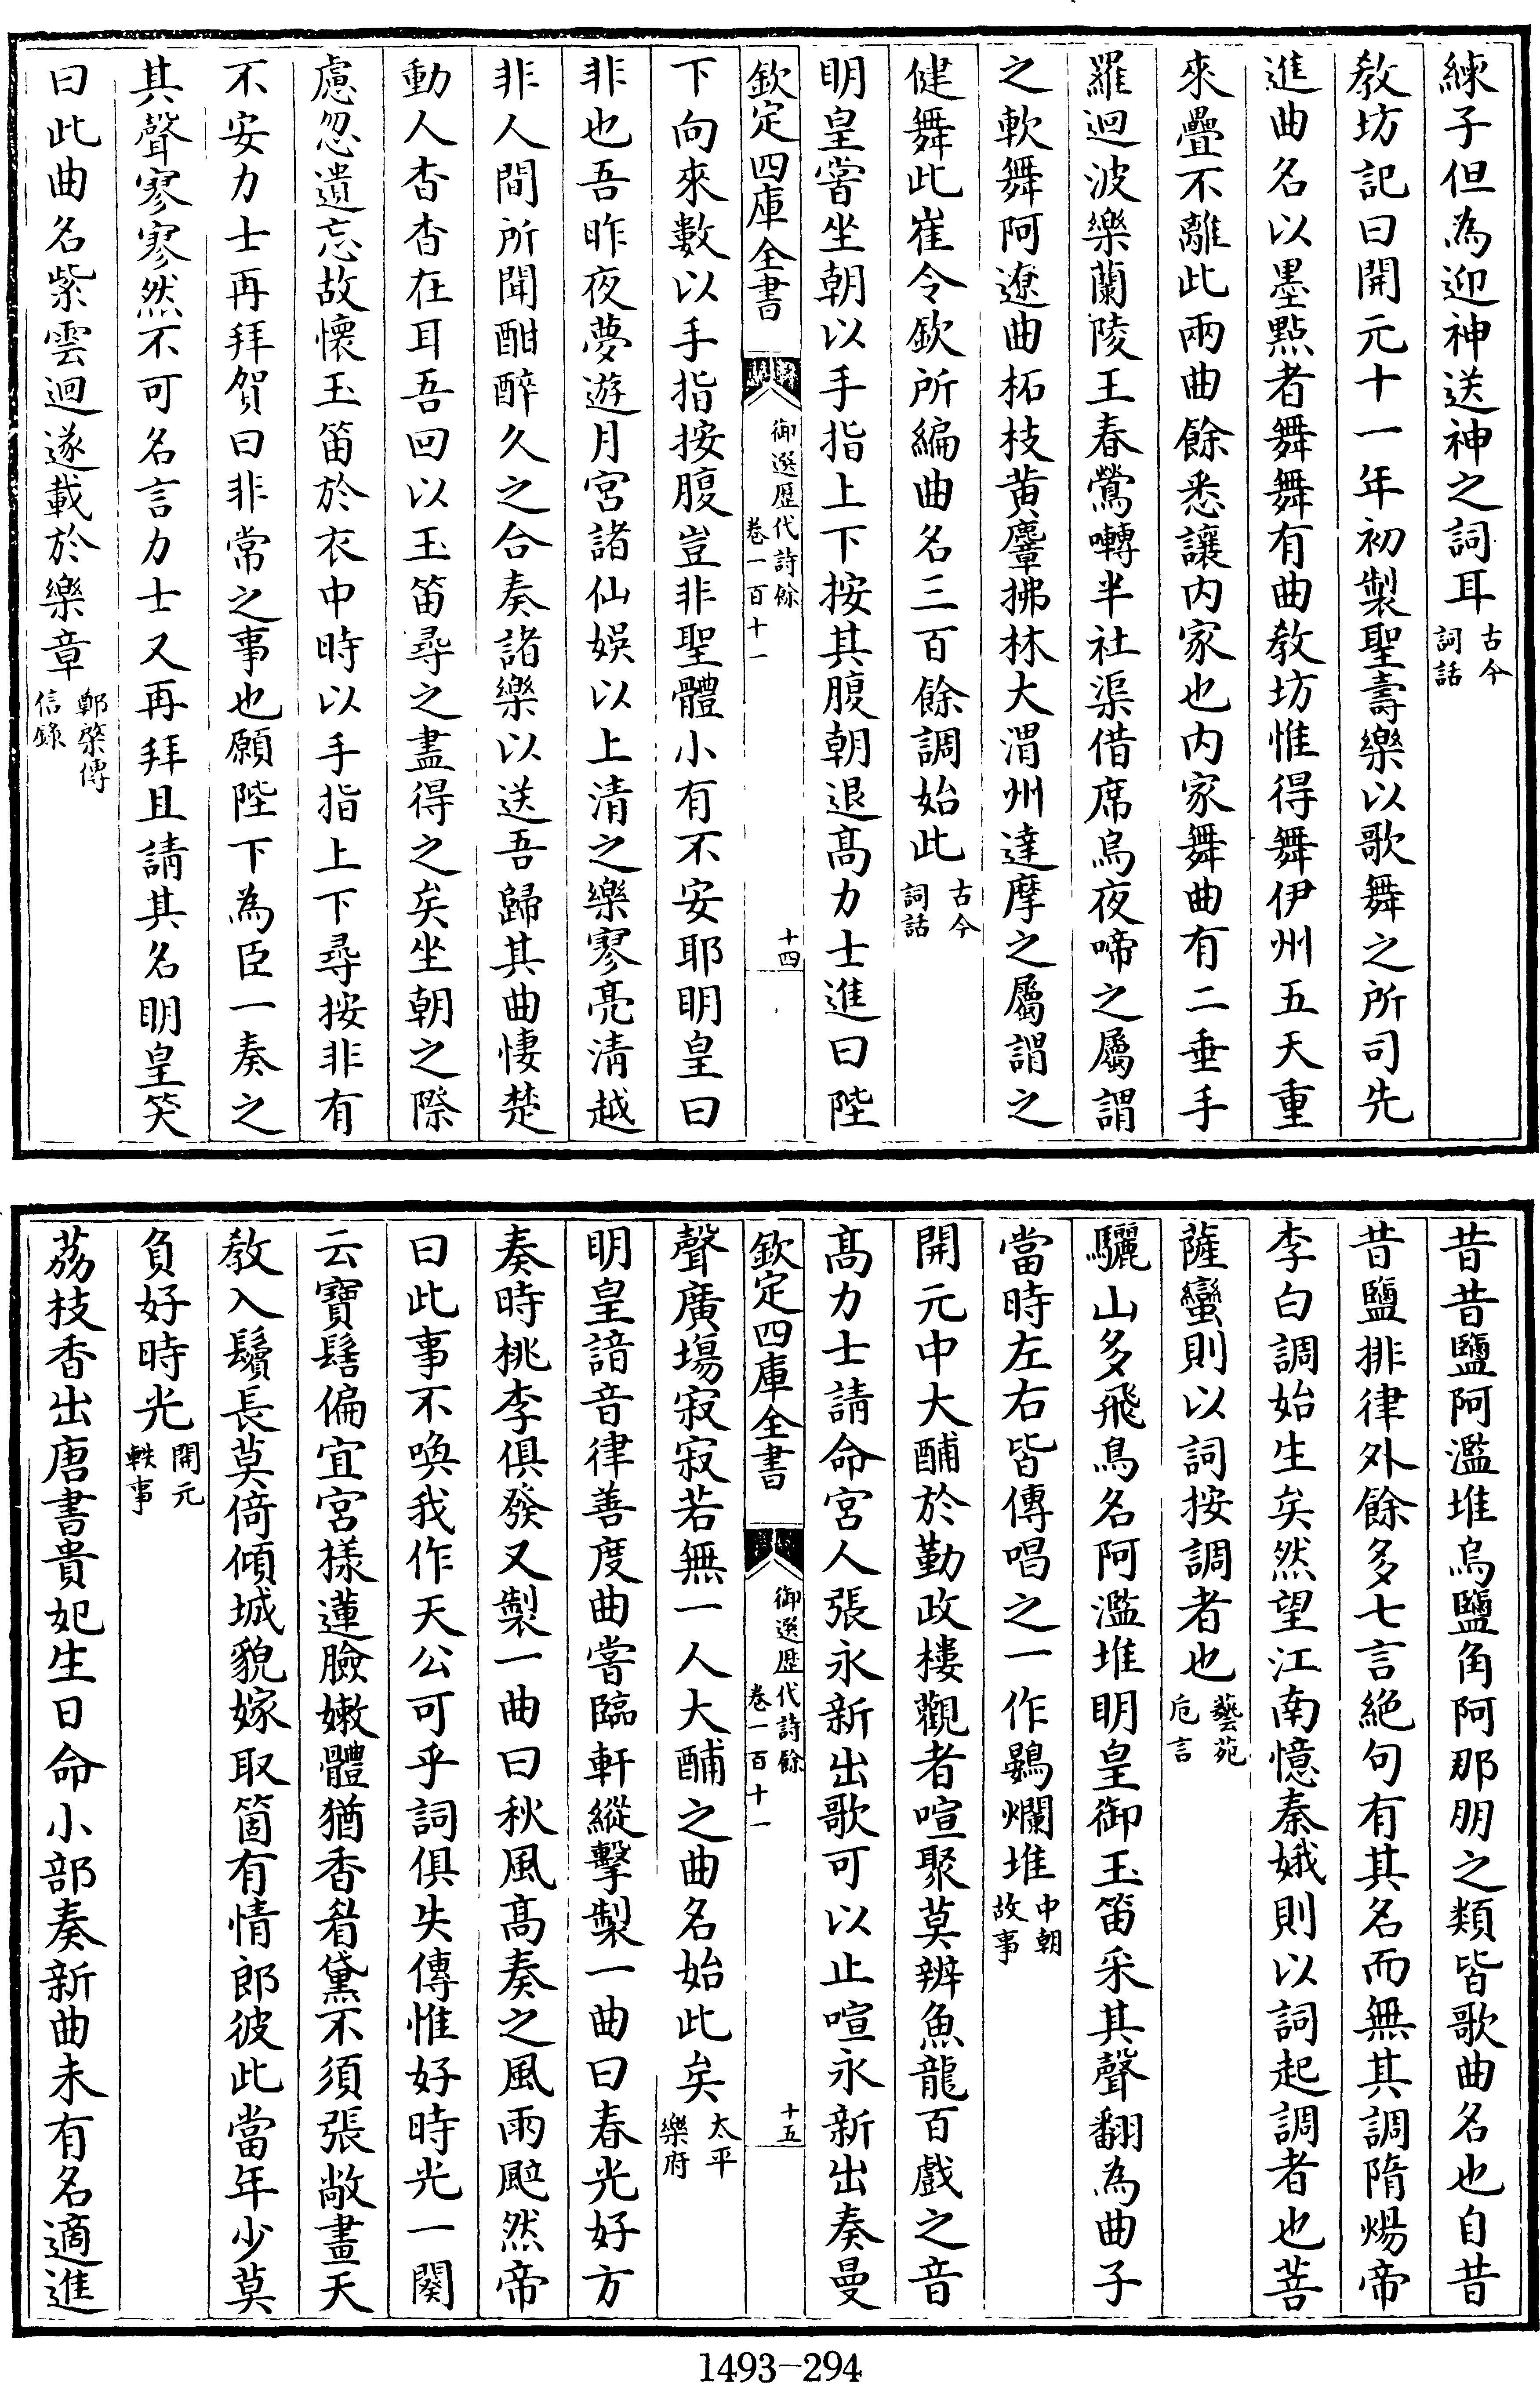 練子但為迎神送神之詞耳古今詞話
教坊記曰開元十一年初製聖壽樂以歌舞之所司先
進曲名以墨點者舞舞有曲教坊惟得舞伊州五天重
來疊不離此兩曲餘悉讓內家也內家舞曲有二垂手
羅迴波樂蘭陵王春鶯囀半社渠借席烏夜啼之屬謂
之軟舞阿遼曲柘枝黃麞拂林大渭州達摩之屬謂之
健舞此崔令欽所編曲名三百餘調始此古今詞話
明皇嘗坐朝以手指上下按其腹朝退高力士進曰陛
欽定四庫全書 御選歷代詩餘 卷一百十一 十四
下向來數以手指按腹豈非聖體小有不安耶明皇曰
非也吾昨夜夢遊月宮諸仙娛以上清之樂寥亮清越
非人間所聞酣醉久之合奏諸樂以送吾歸其曲悽楚
動人杳杳在耳吾回以玉笛尋之盡得之矣坐朝之際
慮忽遺忘故懷玉笛於衣中時以手指上下尋按非有
不安力士再拜賀曰非常之事也願陛下為臣一奏之
其聲寥寥然不可名言力士又再拜且請其名明皇笑
曰此曲名紫雲迴遂載於樂章鄭棨傳信錄
昔昔鹽阿濫堆烏鹽角阿那朋之類皆歌曲名也自昔
昔鹽排律外餘多七言絕句有其名而無其調隋煬帝
李白調始生矣然望江南憶秦娥則以詞起調者也菩
薩蠻則以詞按調者也藝苑卮言
驪山多飛鳥名阿濫堆明皇御玉笛采其聲翻為曲子
當時左右皆傳唱之一作鷃爛堆中朝故事
開元中大酺於勤政樓觀者喧聚莫辨魚龍百戲之音
高力士請命宮人張永新出歌可以止喧永新出奏曼
欽定四庫全書 御選歷代詩餘 卷一百十一 十五
聲廣場寂寂若無一人大酺之曲名始此矣太平樂府
明皇諳音律善度曲嘗臨軒縱擊製一曲曰春光好方
奏時桃李俱發又製一曲曰秋風高奏之風雨颯然帝
曰此事不喚我作天公可乎詞俱失傳惟好時光一闋
云寶髻偏宜宮樣蓮臉嫩體猶香眉黛不須張敞畫天
教入鬢長莫倚傾城貌嫁取箇有情郎彼此當年少莫
負好時光開元軼事
荔枝香出唐書貴妃生日命小部奏新曲未有名適進
1493-294